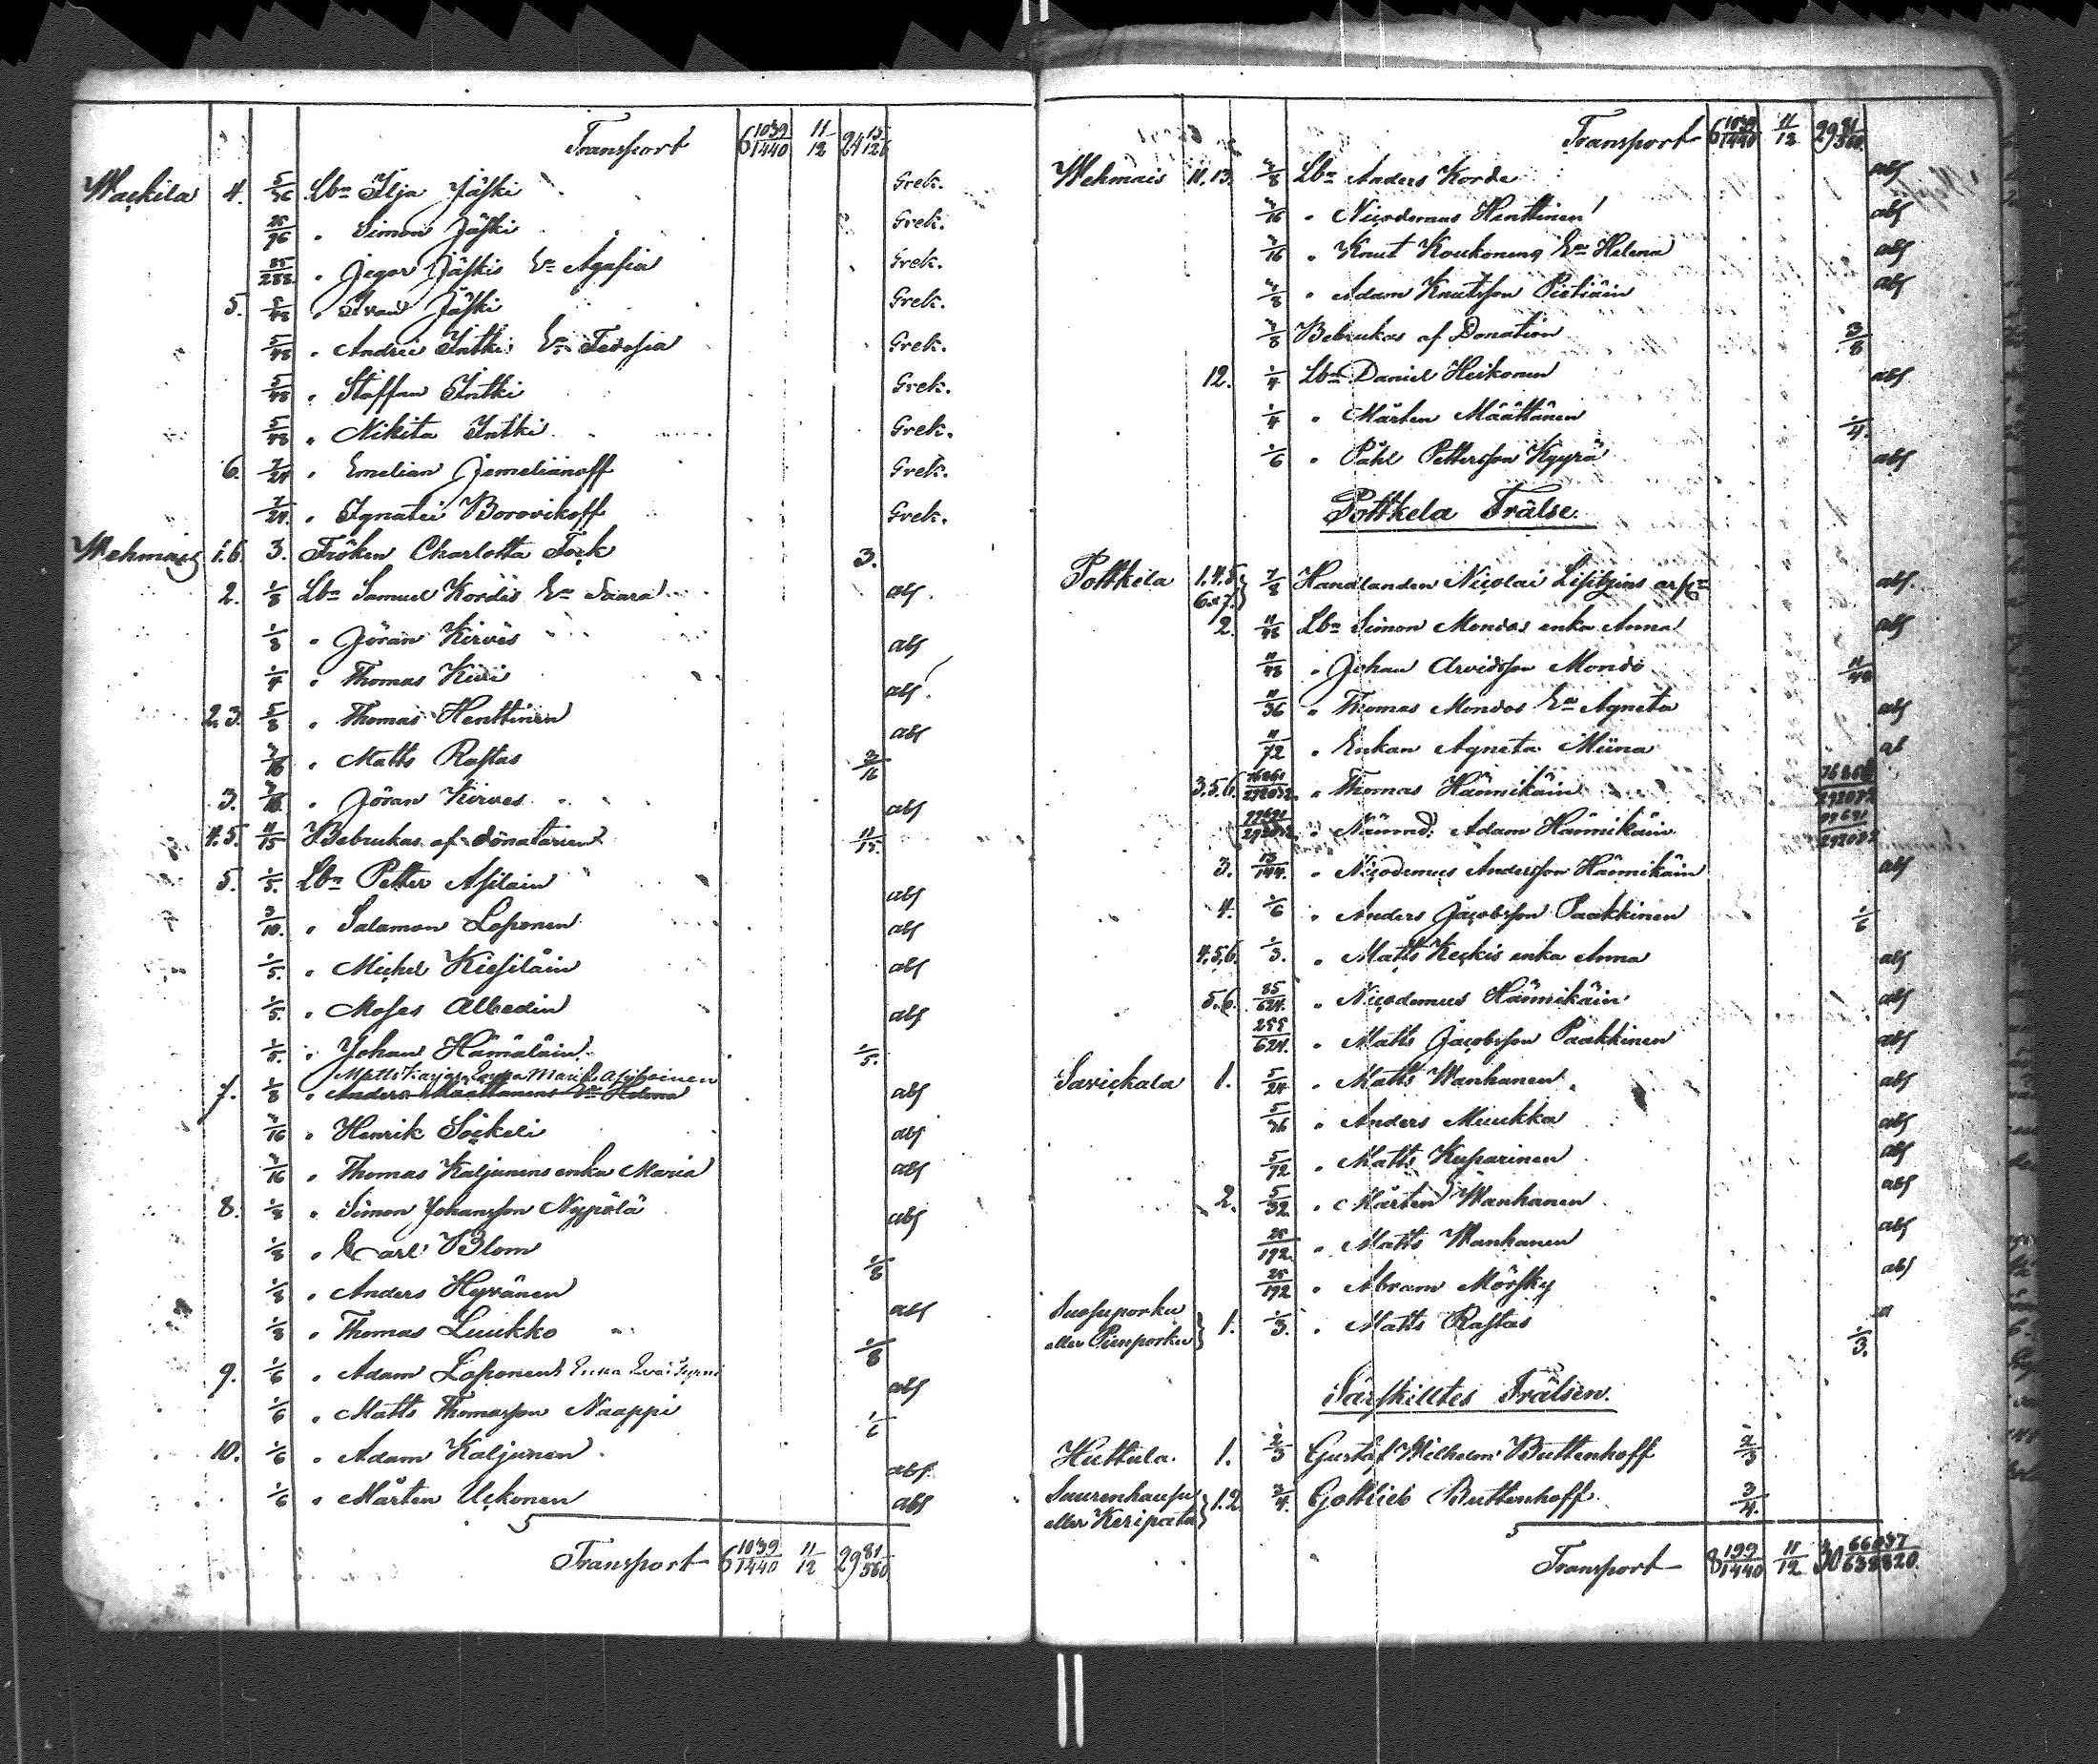 Transport 6 1039/1440 11/12 24 15/126
Wackila 4. 5/36 Lbn Ilja Jäski Grek.
25/96 " Simon Jäski Grek.
25/288 " Jegor Jäskis En Agafia Grek.
5. 5/48 " Ivan Jäski Grek.
5/48 " Andrei Intki En Fedosia Grek.
5/48 " Staffan Intki Grek.
5/48 " Nikita Intki Grek.
6. 7/24 " Emelian Jemelianoff Grek.
7/24 " Ignatei Borovikoff Grek.
Wehmais 1.6 3. Fröken Charlotta Fock 3.
2. 1/8 Lbn Samuel Kordis En Saara abs.
1/8 " Jöran Kirves abs
1/4 " Thomas Kivi abs.
2.3. 5/8 " Thomas Henttinen abs
3/16 " Matts Rastas 3/16
3. 3/16 " Jöran Kirves abs
4.5. 11/15 Bebrukas af donatarien 11/15.
5. 1/5. Lbn Petter Asilain abs
3/10. " Salamon Loponen abs
1/5. " Michel Kiesiläin abs
1/5. " Moses Albedin abs
1/5. " Johan Hämäläin 1/5.
Matts Karjas Enka Maria
7. 1/8 " Anders Määttänens En Helena abs
3/16 " Henrik Säckeli abs
3/16 " Thomas Kaljunens enka Maria abs
8. 1/8 " Simon Johansson Nypölä abs
1/8 " Carl Blom 1/8
1/8 " Anders Hyvänen abs
1/8 " Thomas Luukko 1/8
9. 1/6 " Adam Loponens Enka Eva abs
1/6 " Matts Thomasson Naappi 1/6
10. 1/6 " Adam Kaljunen abs.
1/6 " Mårten Uckonen abs
Transport 6 1039/1440 11/12 29 81/560
Transport 6 1039/1440 11/12 29 81/560
Wehmais 11.13. 3/8 Lbn Anders Korde abs
3/16 " Nicodemus Henttinen abs
3/16 " Knut Koukonens En Helena abs
3/8 " Adam Knutsson Pietiäin abs
3/8 Bebrukas af Donation 3/8
12. 1/4 Lbn Daniel Heikonen abs
1/4 " Mårten Määttänen 1/4.
1/6 " Påhl Pettersson Kyyrä abs
Pottkela Frälse.
Pottkila 1.4.5 6.7. 7/8 Handlanden Nicolai Lisitzins arfr abs.
2. 11/48 Lbn Simon Mondos enka Anna abs
11/48 " Johan Arvidsson Mondo 11/48
11/36 " Thomas Mondos En Agneta abs
11/72 " Enkan Agneta Miina ab
3.5.6. " Thomas Hännikäin
" Nämnd: Adam Hännikäin
3. 13/144. " Nicodemus Andersson Hännikäin abs
4. 1/6 " Anders Jacobsson Paakkinen 1/6
4,5,6. 1/3. " Matts Keckis enka Anna abs
5.6. 85/624. " Nicodemus Hännikäin abs
255/624. " Matts Jacobsson Paakkinen abs
Savickala 1. 5/24 " Matts Wanhanen abs
5/36 " Anders Muukka abs
5/72 " Matts Kuparinen abs
2. 5/32 " Mårten Wanhanen abs
25/192 " Matts Wanhanen abs
25/192 " Abram Mörsky abs
Suosuporku
eller Piinporku 1. 1/3. " Matts Rastas 1/3.
Särskilltes Frälsen.
Huttula. 1. 2/3 Gustaf Wilhelm Buttenhoff 2/3
Suurenhaupu
eller Keripata 1.2 3/4. Gottlieb Buttenhoff 3/4.
Transport 8 199/1440 11/12 30